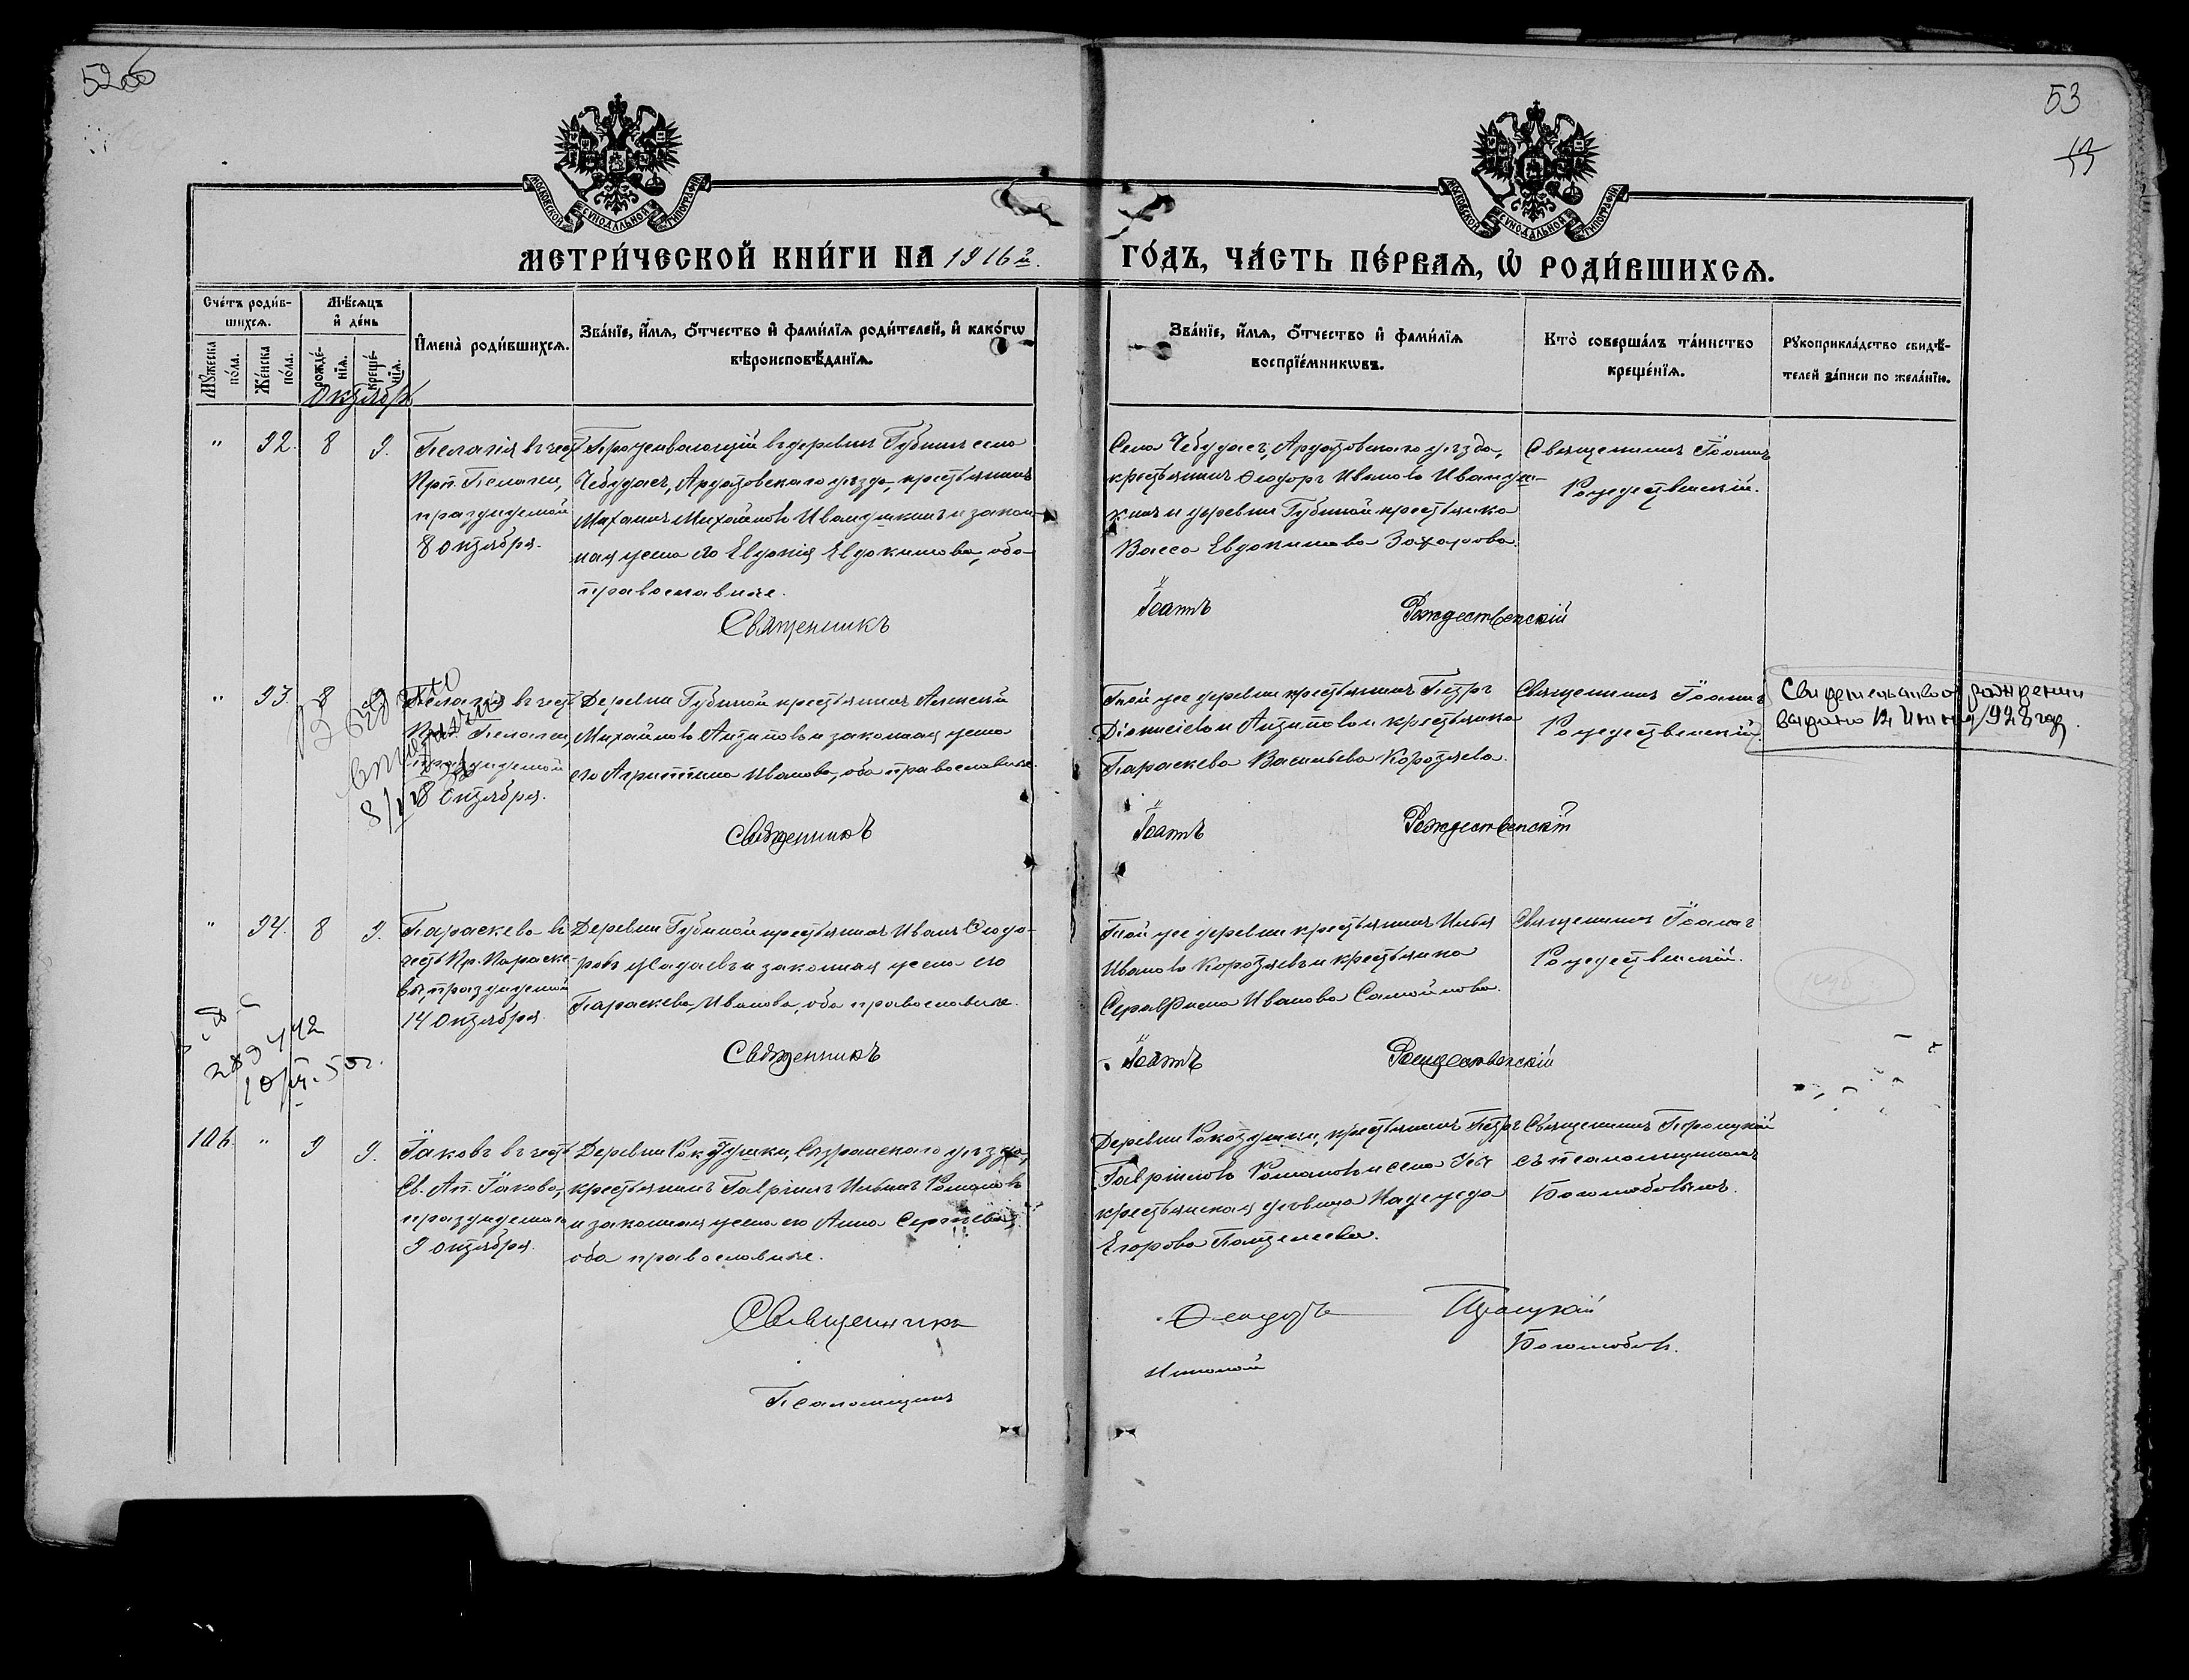 52об
53
53
МОСКОВСКОЙ СѴНОДАЛЬНОЙ ТИПОГРАФІИ
МОСКОВСКОЙ СѴНОДАЛЬНОЙ ТИПОГРАФІИ
МЕТРИ́ЧЕСКОЙ КНИ́ГИ НА 1916й.
ГО́ДЪ, ЧА́СТЬ ПЕ́РВАЯ, Ѡ РОДИ́ВШИХСЯ.
Сче́тъ роди́в-
шихся.
Мꙋ́жеска по́ла.
Же́нска по́ла.
Мѣ́сяцъ и де́нь
рожде́нїя.
креще́нїя.
Имена̀ роди́вшихся.
Зва́нїе, и́мя, ѻ́тчество и фами́лїя роди́телей, и како́гѡ
вѣроисповѣ́данїя.
Зва́нїе, и́мя, ѻ́тчество и фами́лїя
воспрїе́мникѡвъ.
Кто̀ соверша́лъ та́инство
креще́нїя.
Рꙋкоприкла́дство свидѣ́-
телей за́писи по жела́нїю.
Октябрь
" 92. 8 9.
Пелагія въ честь
Прп. Пелагеи,
празднуемой
8 Октября.
Проживающій въ деревнѣ Губинѣ села
Чебудасъ, Ардатовскаго уѣзда, крестьянинъ
Михаилъ Михайловъ Ивандикинъ и закон-
ная жена его Евдокія Евдокимова, оба
православные.
Священникъ
Села Чебудасъ, Ардатовскаго уѣзда,
крестьянинъ Ѳеодоръ Ивановъ
и деревни Губиной крестьянка
Васса Евдокимова Захарова.
Іоаннъ Рождественскій
Священникъ Іоаннъ
Рождественскій.
" 93. 8 9
Пелагія въ честь
Прп. Пелагеи,
празднуемой
8 Октября.
Деревни Губиной крестьянинъ Алексѣй
Михайловъ Антиповъ и законная жена
его Агриппина Иванова, оба православные.
Священникъ
Той же деревни крестьянинъ Петръ
Діонисіевъ Антиповъ и крестьянка
Параскева Васильева Коротяева.
Іоаннъ Рождественскій
Священникъ Іоаннъ
Рождественскій.
Свидетельство о рождении
выдано 12 Июня 1928 год.
" 94. 8 9.
Параскева въ
честь Пр. Параске-
вы, празднуемой
14 Октября.
Деревни Губиной крестьянинъ Иванъ Ѳеодо-
ровъ Усадаевъ и законная жена его
Параскева Иванова, оба православные.
Священникъ
Той же деревни крестьянинъ Илья
Ивановъ Коротяевъ и крестьянка
Серафима Иванова Самойлова.
Іоаннъ Рождественскій
Священникъ Іоаннъ
Рождественскій.
106. " 9 9.
Іаковъ въ честь
Св. Ап. Іакова,
празднуемаго
9 Октября.
Деревни Рокотушки, Сызранскаго уѣзда,
крестьянинъ Гавріилъ Ильинъ Романовъ
и законная жена его Анна Сергѣева,
оба православные.
Священникъ
Псаломщикъ
Деревни Рокотушки, крестьянинъ Петръ
Гавріиловъ Романовъ и села
крестьянская дѣвица Надежда
Егорова Пантелеева.
Ѳеодоръ Троицкій
Николай Боголюбовъ.
Священникъ Троицкій
съ псаломщикомъ
Боголюбовымъ.